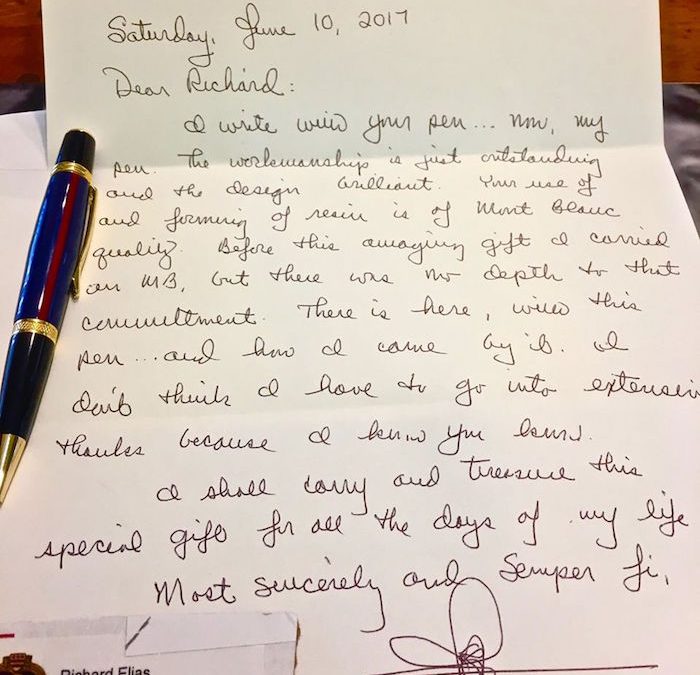 Saturday, June 10, 2017
Dear Richard:
I write with your pen... now, my
pen. The workmanship is just outstanding
and the design brilliant. Your use of
and forming of resin is of Mont Blanc
quality. Before this amazing gift I carried
an MB, but there was no depth to that
committment. There is here, with this
pen...and how I came by it. I
don't think I have to go into extensiv
thanks because I know you know.
I shall carry and treasure this
special gift for all the days of my life
Most sincerely and Semper Fi,
Richard Elias